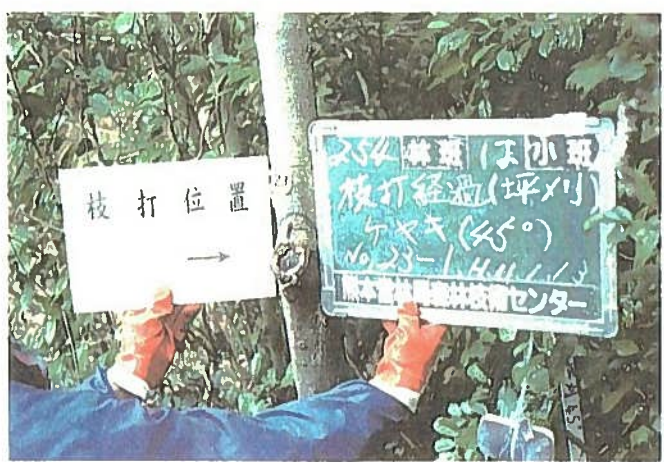 枝打位置
→
254 林班 は 小班
枝打経過(坪刈)
ケヤキ(45°)
No.23-1 H11.1.
熊本営林局森林技術センター